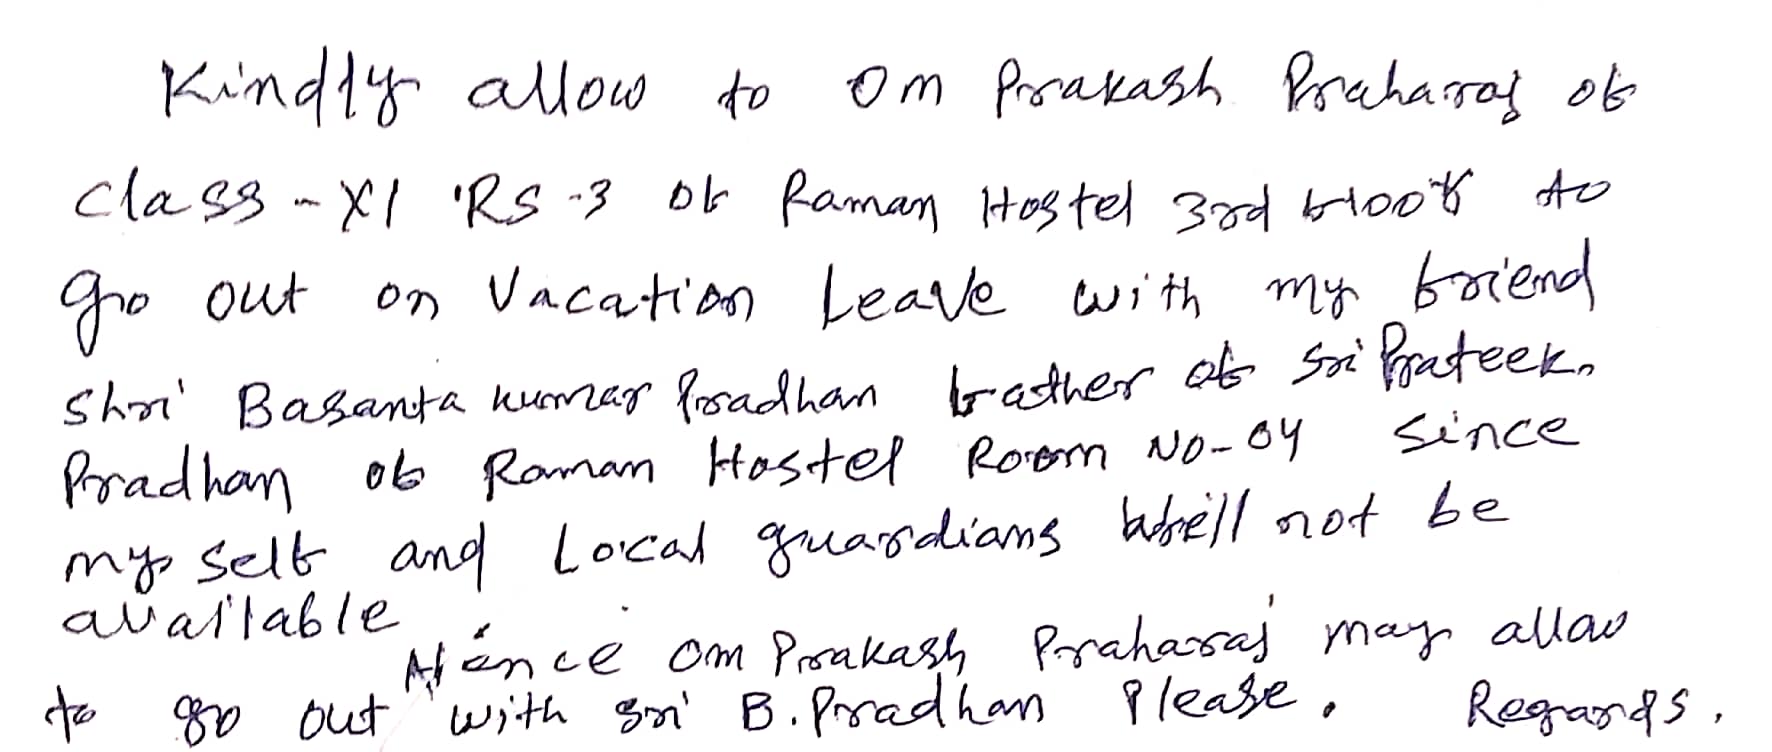 Kindly allow to Om Prakash Praharaj of
class - XI 'RS -3 of Raman Hostel 3rd floor to
go out on Vacation Leave with my friend
Shri Basanta kumar Pradhan father of Sri Prateek
Pradhan of Raman Hostel Room No-04 since
my self and Local guardians will not be
available
Hence Om Prakash Praharaj may allow
to go out with Sri B. Pradhan Please. Regards.